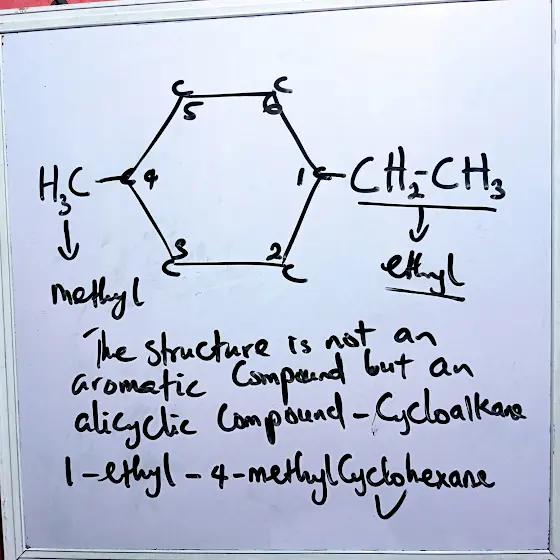 C C
5 6
H₃C - C 4 1 C - CH₂-CH₃
3 2
C C
methyl ethyl
The structure is not an
aromatic Compound but an
alicyclic Compound - Cycloalkane
1-ethyl-4-methylCyclohexane